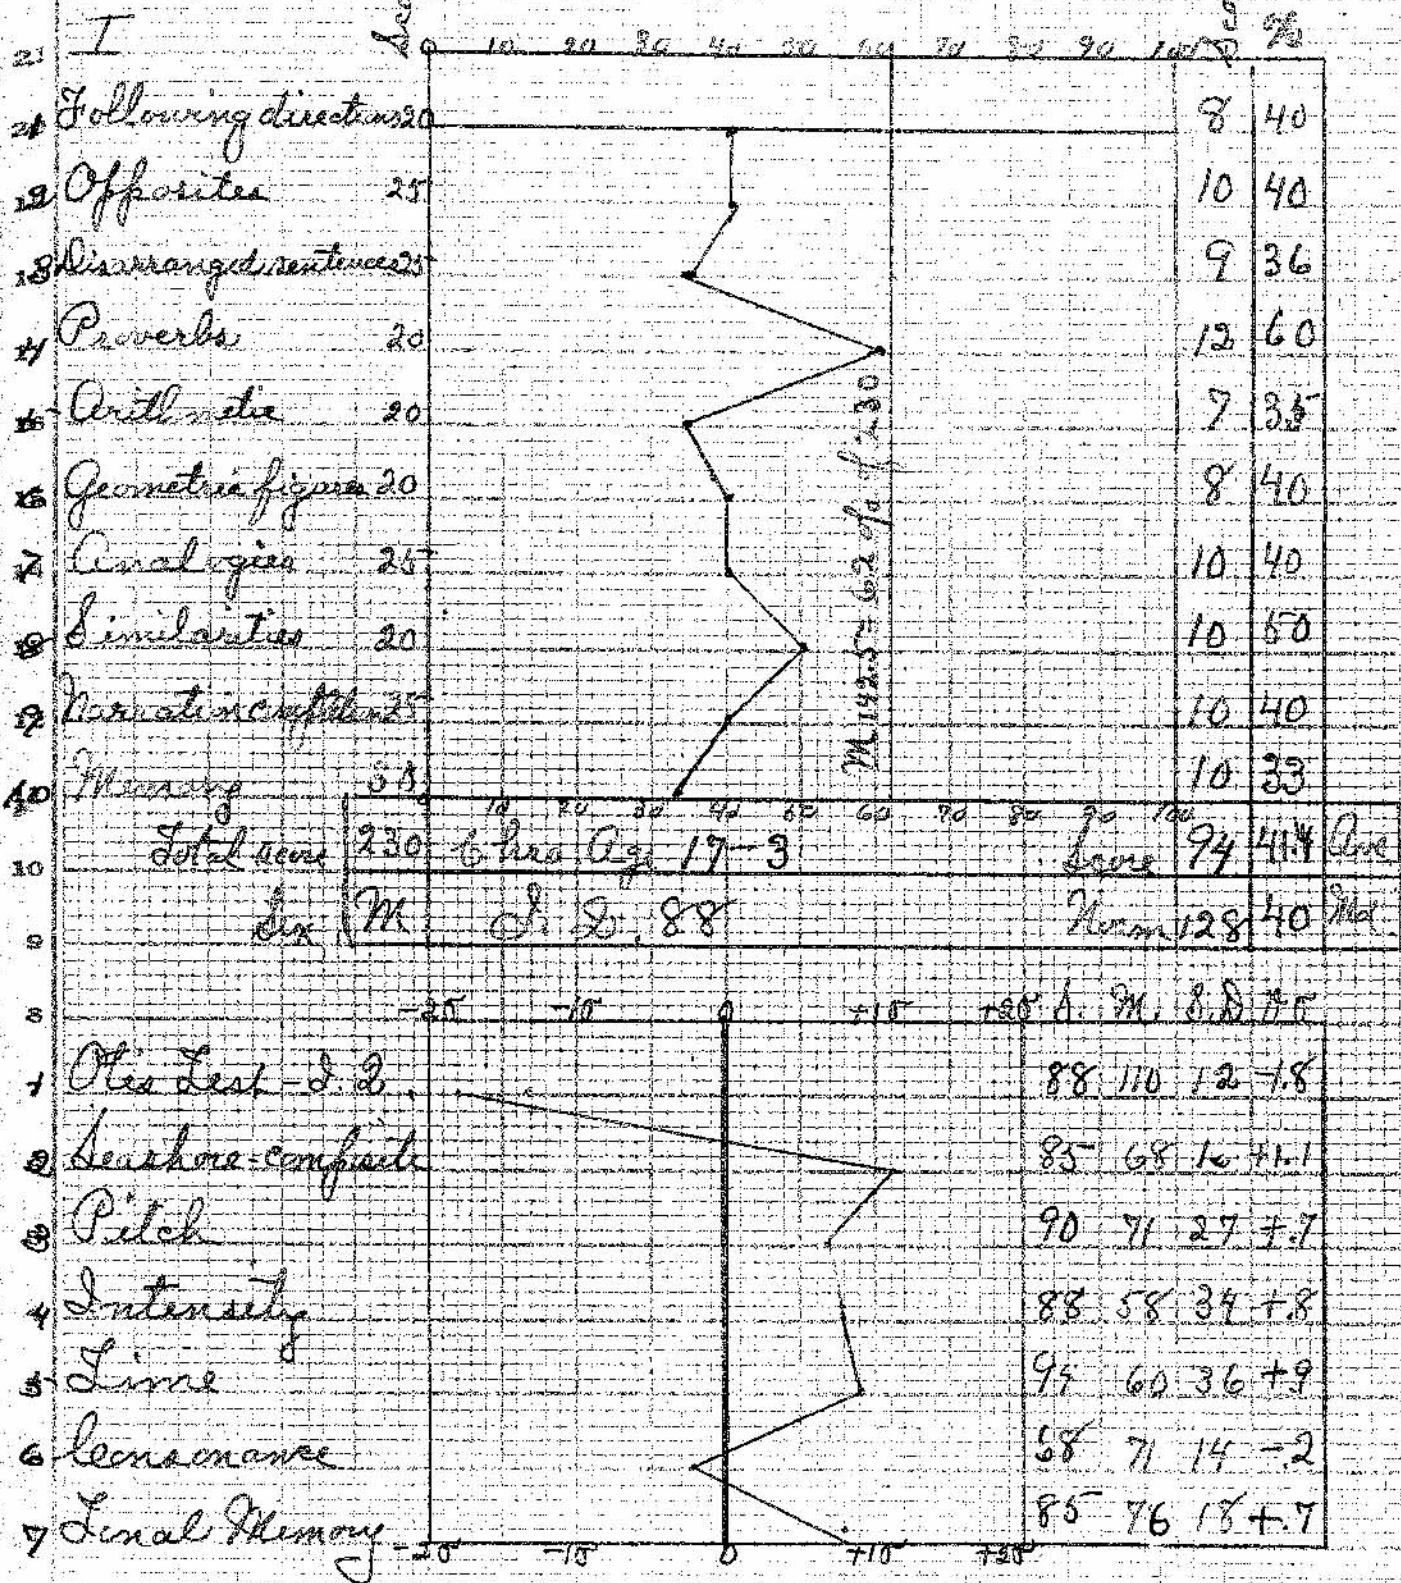 I 0 10 20 30 40 50 60 70 80 90 100 %
Following directions 20 8 40
Opposites 25 10 40
Disarranged sentences 25 9 36
Proverbs 20 12 60
Arithmetic 20 7 35
Geometric figures 20 8 40
Analogies 25 10 40
Similarities 20 10 50
Narrative 25 10 40
Memory 10 33
M 142.5 = 62 % of 230
0 10 20 30 40 50 60 70 80 90 100
Total score 230 6 hrs Age 17-3 Score 94 41.4 Ave
Sex M. I. Q. 88 Norm 128 40 Md.
-2σ -1σ 0 +1σ +2σ S. M. S.D
1 Otis Test - I. Q. 88 110 12 -1.8
2 Seashore-composite 85 68 16 +1.1
3 Pitch 90 71 27 +.7
4 Intensity 88 58 34 +.8
5 Time 94 60 36 +.9
6 Consonance 68 71 14 -.2
7 Tonal Memory 85 76 18 +.7
-2σ -1σ 0 +1σ +2σ